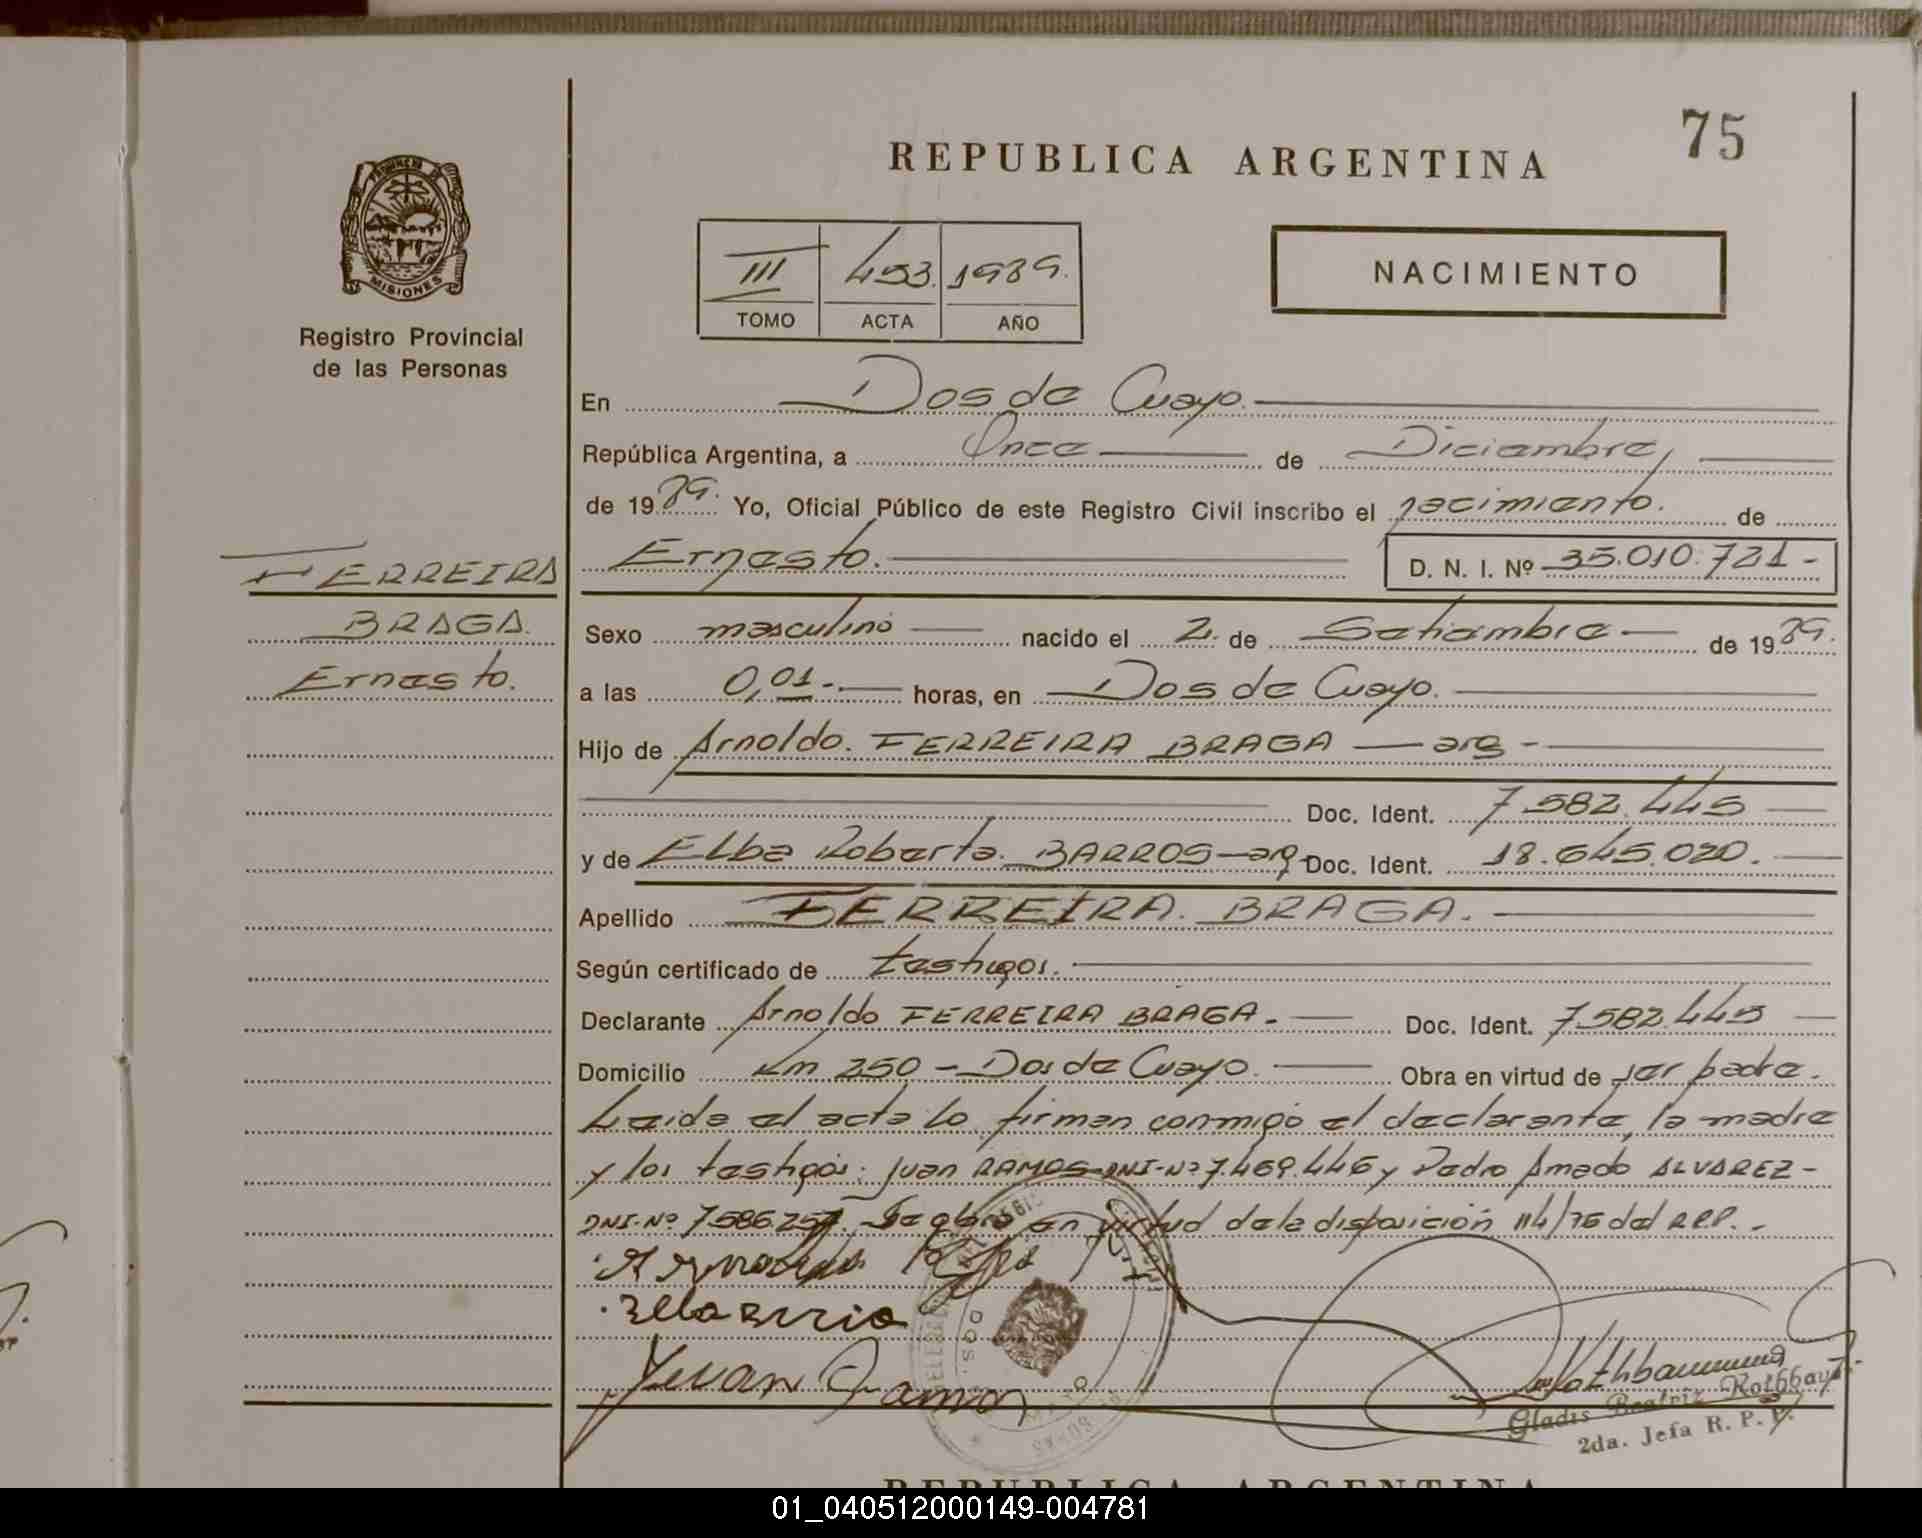 75
REPUBLICA ARGENTINA
PROVINCIA DE
MISIONES
Registro Provincial
de las Personas
III 493. 1989.
TOMO ACTA AÑO
NACIMIENTO
En Dos de Cuayo.
República Argentina, a Once de Diciembre,
de 1989. Yo, Oficial Público de este Registro Civil inscribo el nacimiento. de
Ernesto. D. N. I. Nº 35.010.721-
FERREIRA
BRAGA.
Ernesto.
Sexo masculino nacido el 2. de Setiembre de 1989.
a las 0,01.- horas, en Dos de Cuayo.
Hijo de Arnoldo. FERREIRA BRAGA - arg -
Doc. Ident. 7.582.445
y de Elba Roberta. BARROS-arg- Doc. Ident. 18.645.020.
Apellido FERREIRA. BRAGA.
Según certificado de testigos.
Declarante Arnoldo FERREIRA BRAGA.- Doc. Ident. 7.582.445
Domicilio Km 250 - Dos de Cuayo. Obra en virtud de ser padre.
Leida el acta lo firman conmigo el declarante, la madre
y los testigos: Juan RAMOS-DNI-Nº 7.469.446 y Pedro Amado ALVAREZ-
DNI-Nº 7.586.257. Se obra en virtud de la disposición 114/76 del RPP.-
Juan Ramos
Gladis Beatriz Rothbaust
2da. Jefa R. P. P.
REPUBLICA ARGENTINA
01_040512000149-004781